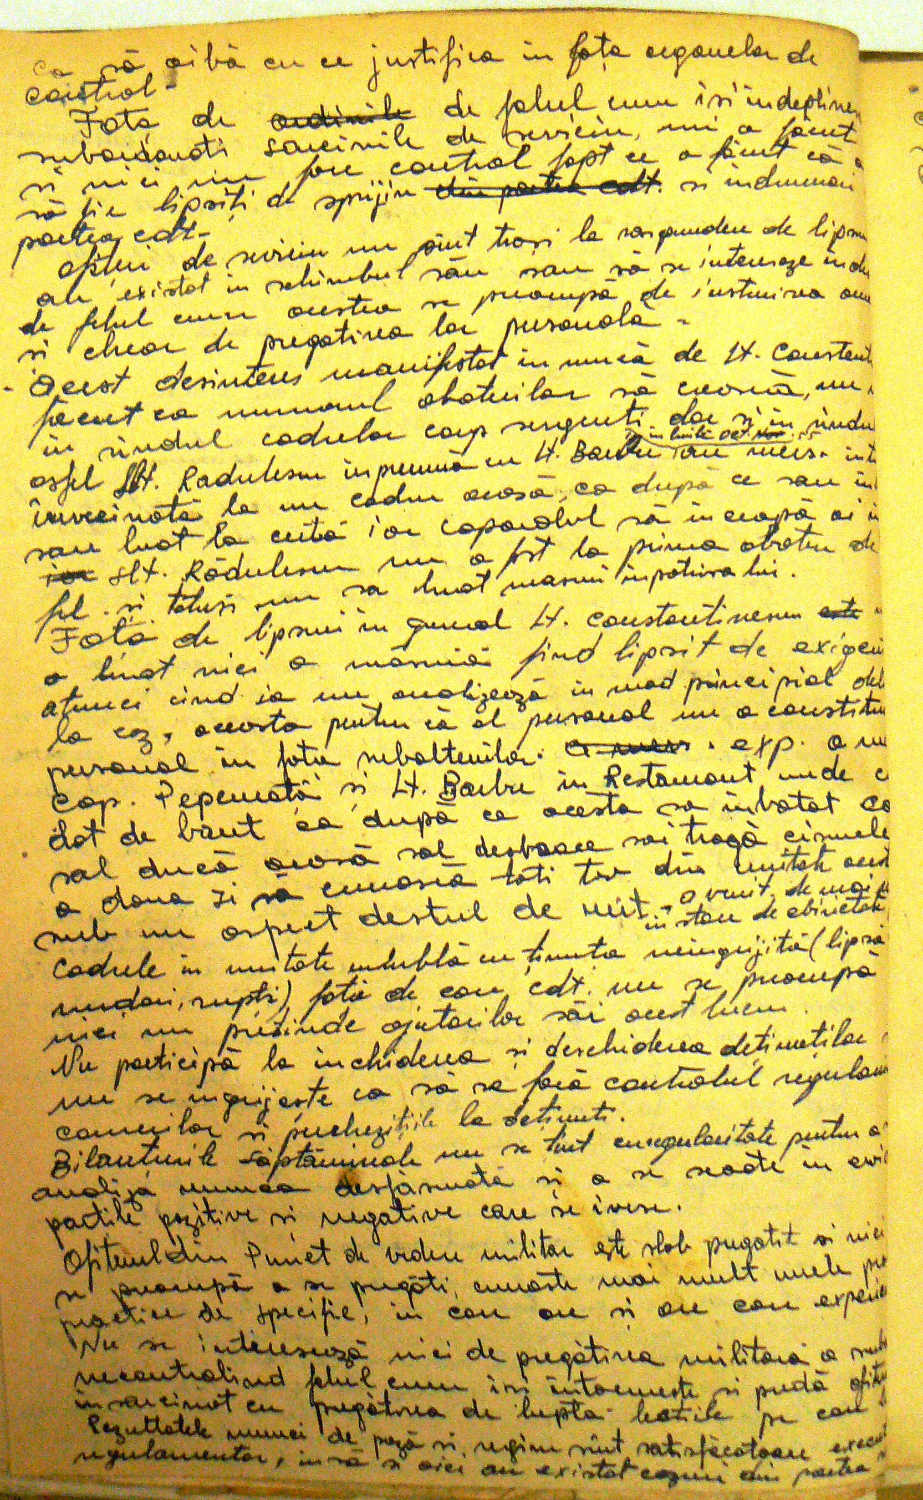 Ca să aibă cu ce justifica în fața organelor de
control -
Fata de ordinile de felul cum isi indeplinesc
subordonatii sarcinile de serviciu, nu a făcut
si nici nu face control fapt ce a făcut că
să fie lipsiti de sprijin din partea cdt. si indrumari
partea cdt.
ofiteri de serviciu nu sînt trasi la raspundere de lipsu
au existat in schimbul său sau să se intereseze
de felul cum acestea se preocupă de instruirea
si chiar de pregatirea lor personala -
- Acest desinteres manifestat în muncă de Lt. Constant
facut ca numarul abaterilor să crească, nu
în rîndul cadrelor corp sergenti dar si în rîndu
astfel Slt. Radulescu împreună cu Lt. Barbu au mers
învecinată la un cadru acasă, ca după ce sau
sau luat la ceartă iar caporalul să înceapă
ior Slt. Rădulescu nu a fost la prima abatere de
fel si totusi nu sa luat masuri împotriva lui.
Fată de lipsuri in general Lt. Constantinescu este
a luat nici o măsură fiind lipsit de exigen
atunci cînd ia nu analizează în mod principial
la caz, aceasta pentru că el personal nu a constitu
personal în fata subalternilor. exp. a m
Cap. Pepenată si Lt. Barbu în Restaurant unde
dat de băut ca după ce acesta sa îmbatat
sal ducă acasă sal desbrace sai tragă cismele
a doua zi să cunoască toti din unitate
sub un aspect destul de urit - a venit de mai
in stare de ebrietate
Cadrele in unitate umblă cu tinuta neingrijită (lipsă
murdari, rupti) fată de care cdt. nu se preocupă
nici nu pretinde ajutorilor săi acest lucru.
Nu participă la închiderea si deschiderea detinutilor
nu se ingrijeste ca să se facă controlul regulam
camerilor si perchezitiile la detinuti.
Bilanturile săptăminale nu se tint cu regularitate pentru a
analiza munca desfasurată si a se scoate în evi
partile pozitive si negative care se ivesc.
Ofiterul din Punct de vedere militar este slab pregatit si nici
se preocupă a se pregăti, cunoste mai mult unele
practice de specific, in care are si are care experien
Nu se interesează nici de pregătirea militară a
necontrolind felul cum isi întocmeste si predă
insarcinat cu pregătirea de luptă lectiile pe care
Rezultatele muncii de pază si regim sînt satisfăcătoare
regulamentar, însă si aici au existat cazuri din partea